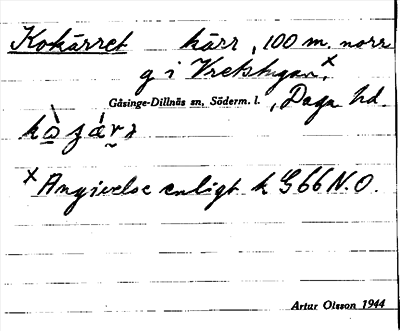 Kokärret kärr, 100 m. norr
g i Vretstugan.x
Gåsinge-Dillnäs sn, Söderm. l., Daga hd.
x Angivelse enligt k G66 N.O.
Artur Olsson 1944